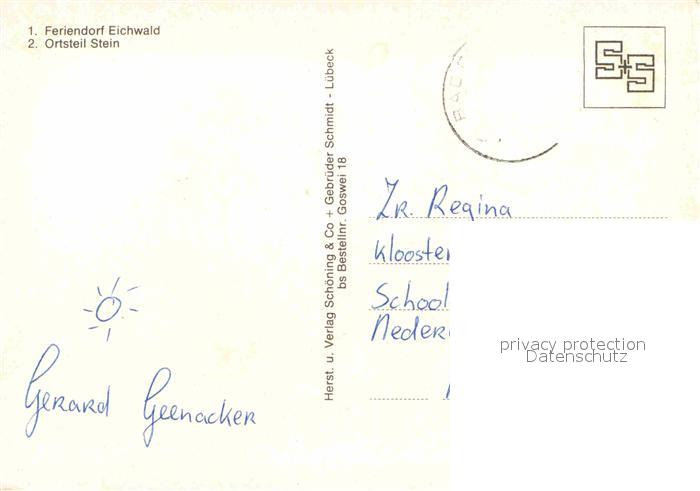 1. Feriendorf Eichwald
2. Ortsteil Stein
S+S
Herst. u. Verlag Schöning & Co + Gebrüder Schmidt - Lübeck
bs Bestellnr. Goswei 18
Zr. Regina
Klooster
School
Neder
privacy protection
Datenschutz
Gerard Geenacker